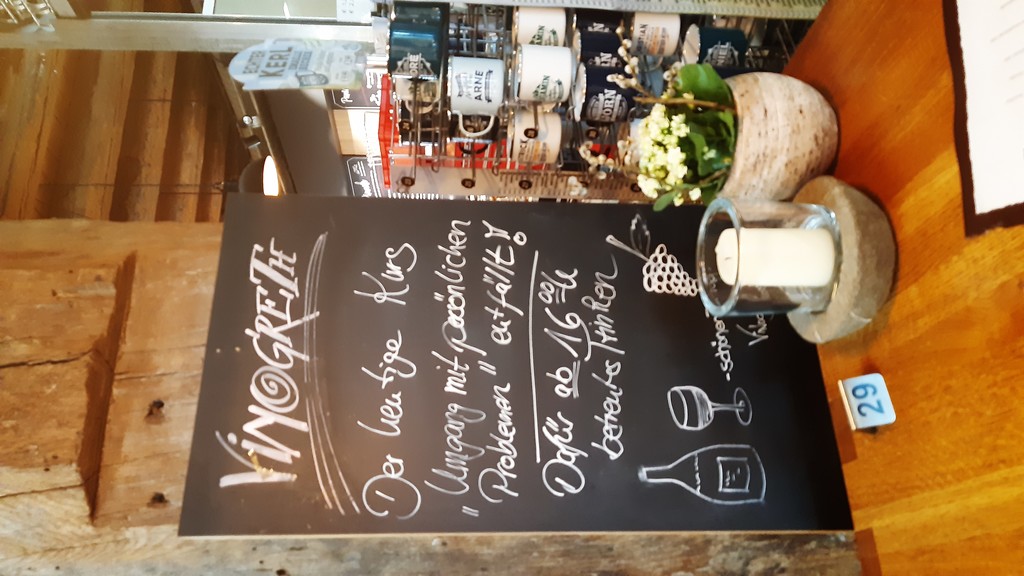 VINOGRETH
Der heutige Kurs
Umgang mit persönlichen
"Problemen" entfällt!
Dafür ab 16 00 U
betreutes Trinken
-schöner
29
KERL
ARNE
KORN